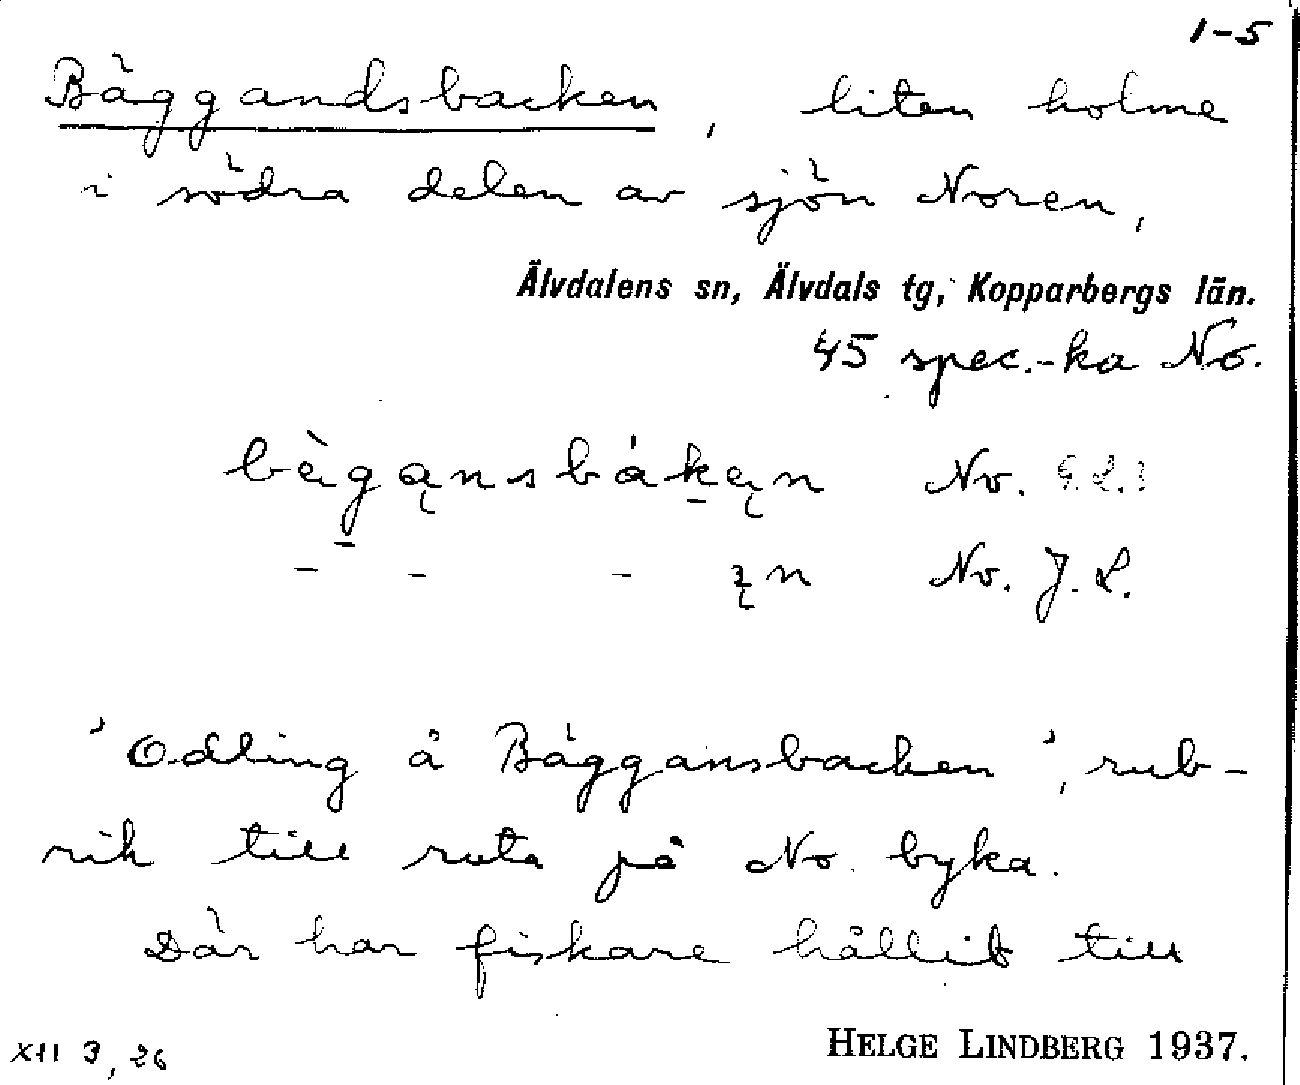 1-5
Bäggandsbacken, liten holme
i södra delen av sjön Noren,
Älvdalens sn, Älvdals tg, Kopparbergs län.
45 spec.-ka No.
bèga̢nsbáka̢n No.
– – – No. J. L.
"Odling å Bäggansbacken", rub-
rik till ruta på No. byka.
Där har fiskare hållit till
XII 3, 26
HELGE LINDBERG 1937.